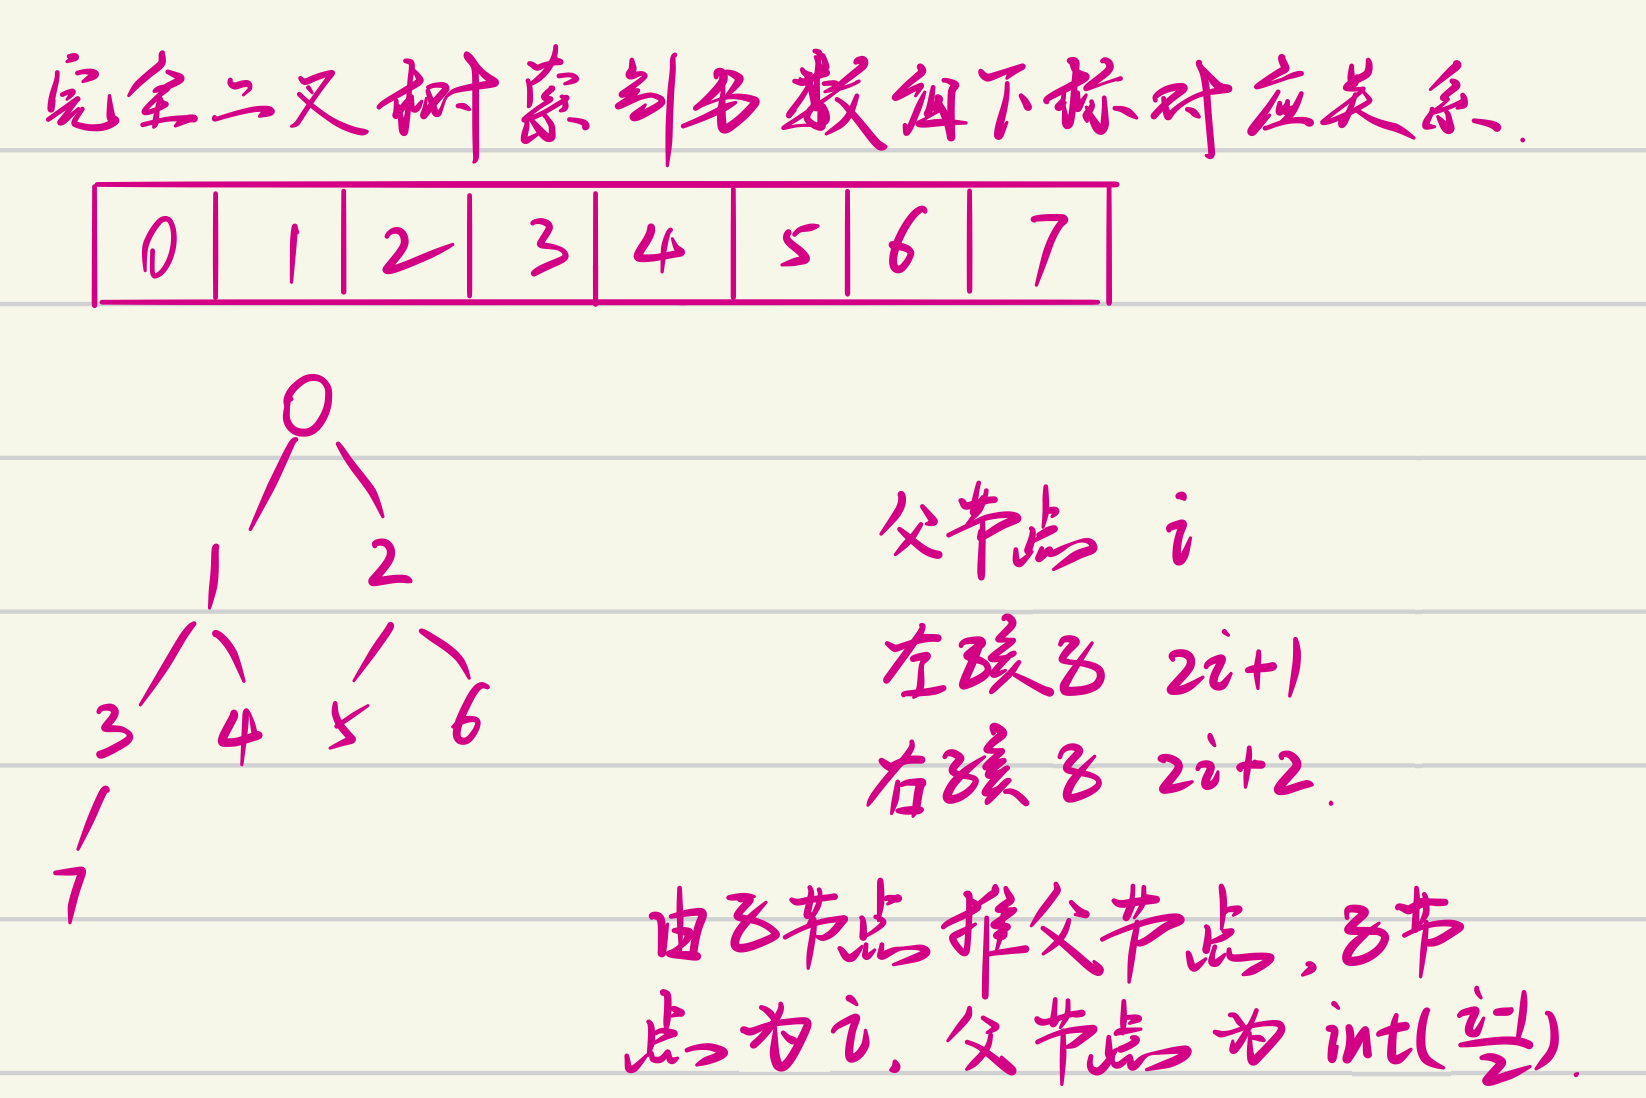 完全二叉树索引与数组下标对应关系.
0 1 2 3 4 5 6 7
0
1 2
3 4 5 6
7
父节点 i
左孩子 2i+1
右孩子 2i+2.
由子节点推父节点,子节
点为i,父节点为int(\frac{i-1}{2}).